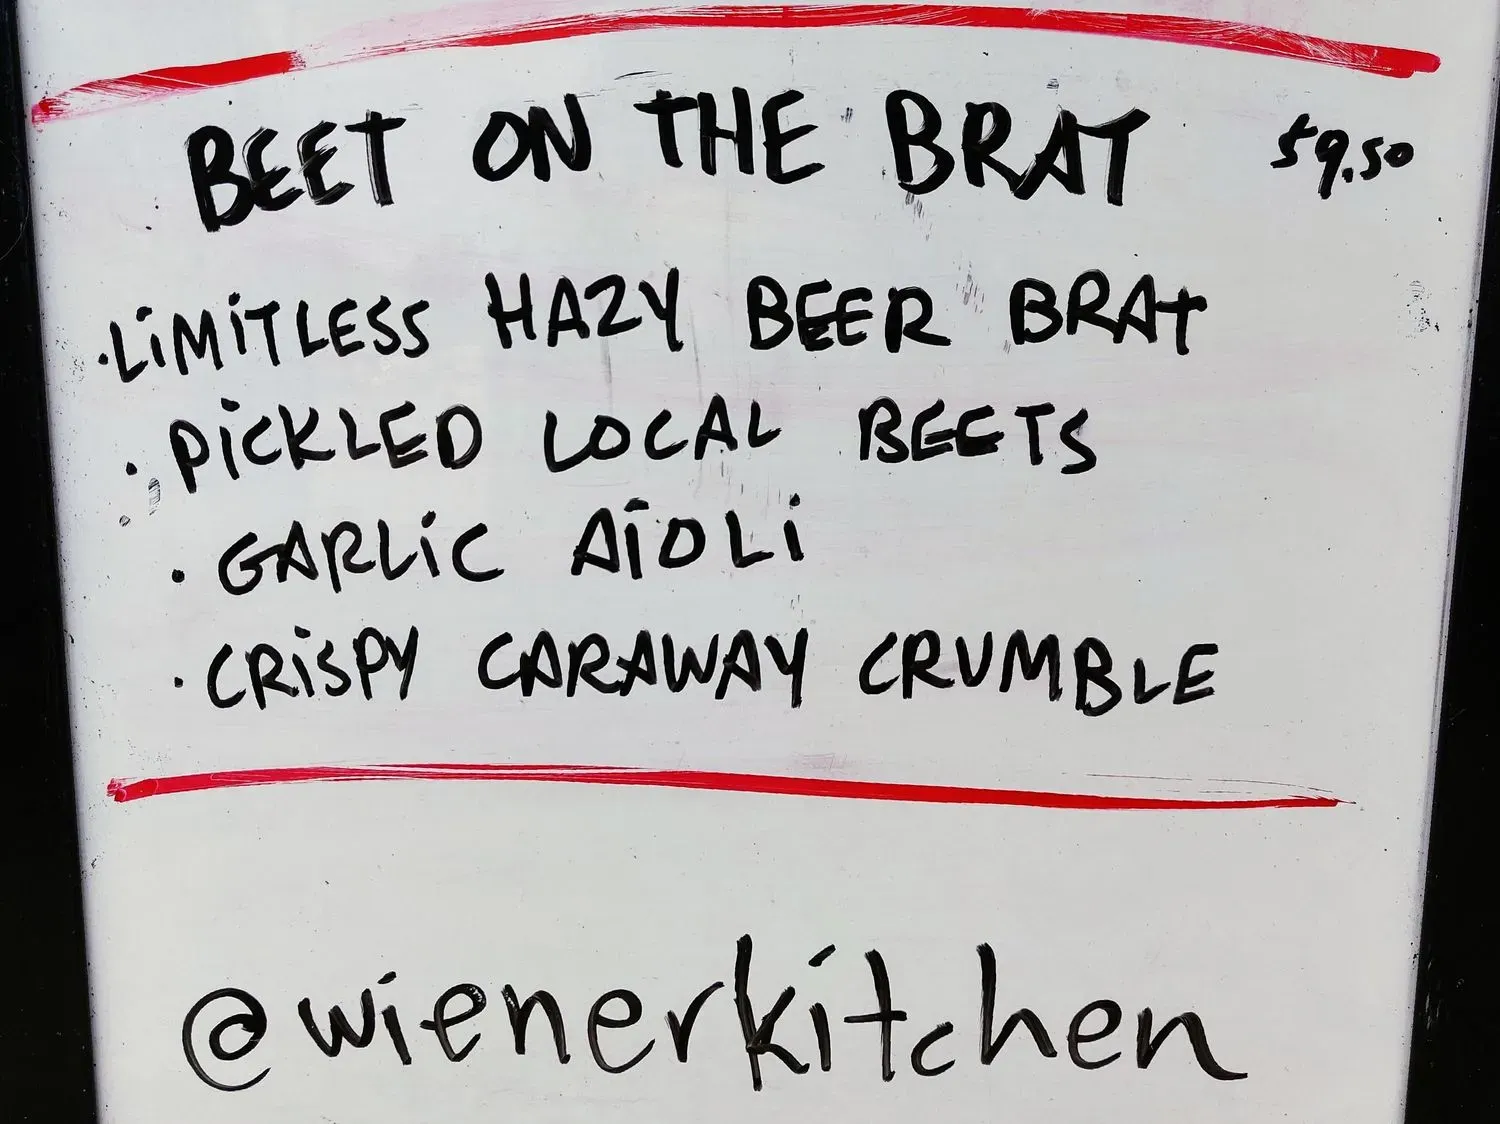 BEET ON THE BRAT $9.50
·LiMiTLESS HAZY BEER BRAT
·PiCKLED LOCAL BEETS
·GARLiC AïOLi
·CRiSPY CARAWAY CRUMBLE
@wienerkitchen